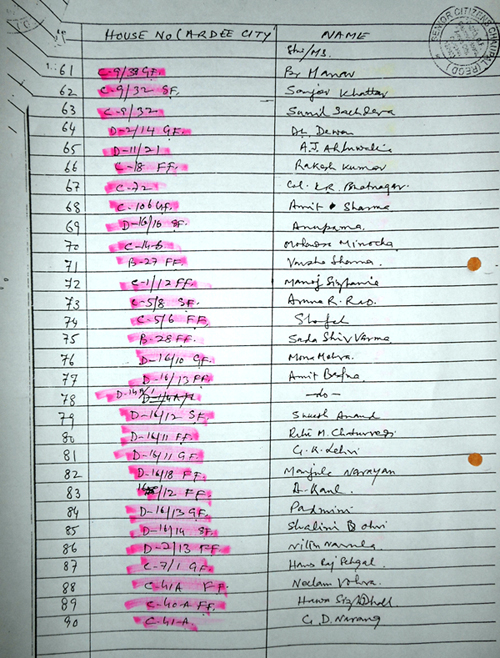 HOUSE NO (ARDEE CITY) NAME
Shri/Ms.
61 C-9/39 GF.
62 C-9/32 SF. Sanjeev Khattar
63 C-9/32 Sunil Sachdeva
64 D-2/14 GF. Dr. Dewan
65 D-11/21 A.J. Ahluwalia
66 C-18 FF. Rakesh Kumar
67 C-72 Col. Bhatnagar
68 C-106 GF. Amit Sharma
69 D-16/16 SF. Anupama
70 C-14-B Minocha
71 B-27 FF Varsha Sharma
72 C-1/12 FF Manoj
73 C-5/8 SF. Aruna R. Rao
74 C-5/6 FF
75 B-28 FF Sada Shiv Verma
76 D-16/10 GF. Mona Mehra
77 D-16/13 FF Amit
78 -do-
79 D-16/12 SF. Anand
80 D-16/11 FF. Ritu M. Chaturvedi
81 D-16/11 GF G.K. Lehri
82 D-16/18 FF Manjula Narayan
83 /12 FF A. Kaul
84 D-16/13 GF. Padmini
85 D-16/14 SF. Shalini Ohri
86 D-2/13 FF Nitin Narula
87 C-7/1 GF Hans Raj Sehgal
88 C-41A FF. Neelam Vohra
89 C-40-A FF.
90 C-41-A G.D. Narang
SENIOR CITIZENS
(REGD.)